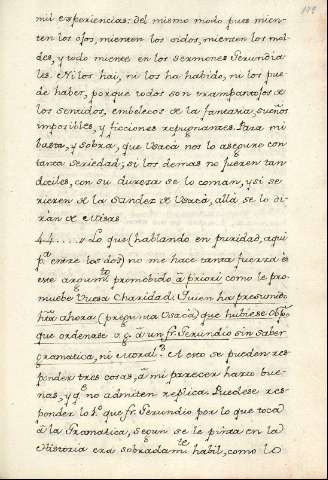 mil experiencias: del mismo modo pues mien-
ten los ojos, mienten los oidos, mienten los mol-
des, y todo miente en los sermones Gerundia-
les. Ni los hai, ni los ha habido, ni los pue-
de haber, porque todos son trampantojos de
los sentidos, embelecos de la fantasia, sueños
imposibles, y ficciones repugnantes. Para mi
basta, y sobra, que Usacà nos lo asegure con
tanta seriedad; si los demas no fueren tan
dociles, con su dureza se lo coman, y si se
rieren de la Sandez de Usacà, allà se lo di-
ràn de Misas.
44..... Lo que (hablando en puridad, aqui
pª entre los dos) no me hace tanta fuerza es
este argumto promobido à priori como le pro-
muebe Vuesa Charidad. Quien ha presumido
hta ahora (pregunta Usacà) que hubiese Obpo
que ordenase à un fr. Gerundio sin saber
gramatica, ni Moral? A esto se pueden res-
ponder tres cosas, à mi parecer harto bue-
nas, y q̃ no admiten replica. Puedese res-
ponder lo 1.º que fr. Gerundio por lo que toca
à la Gramatica, segun se le pinta en la
Historia era sobradamte habil, como lo